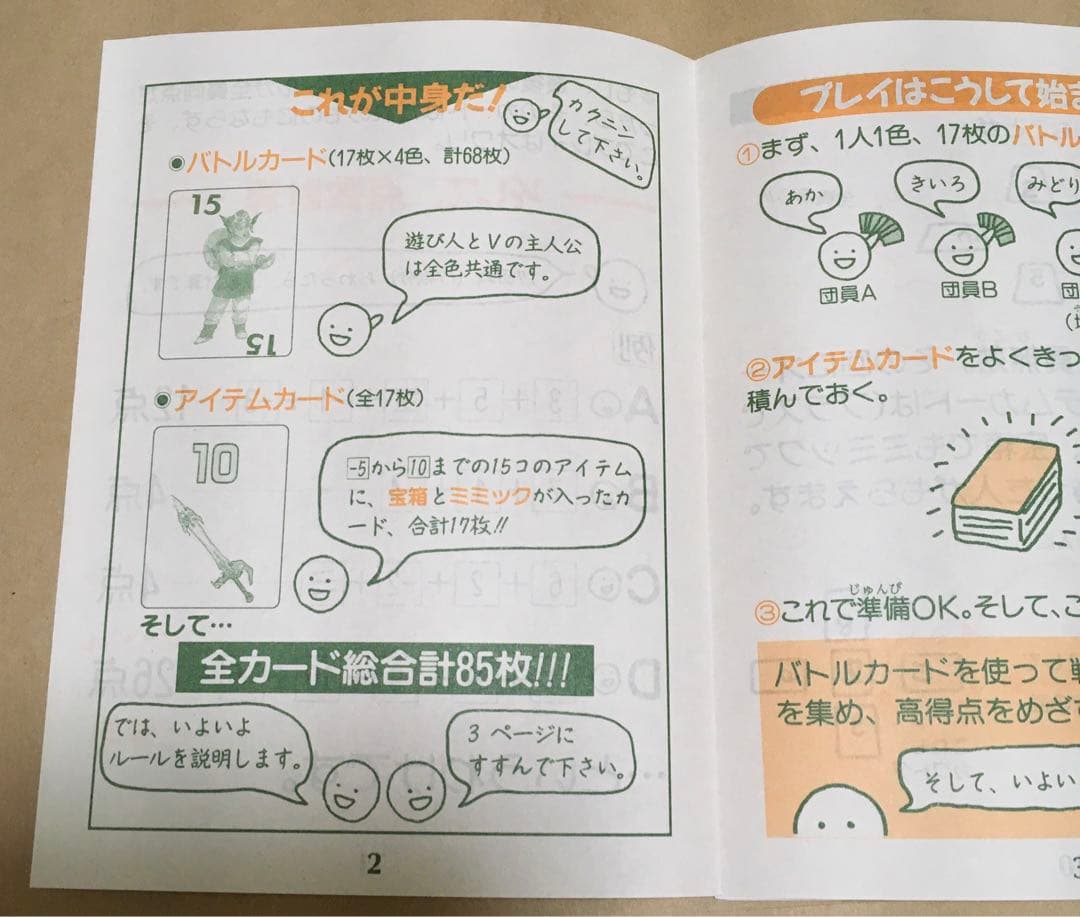 これが中身だ!
カクニン
して下さい。
●バトルカード(17枚×4色、計68枚)
15
15
遊び人とVの主人公
は全色共通です。
●アイテムカード(全17枚)
10
-5から10までの15コのアイテム
に、宝箱とミミックが入ったカ
ード、合計17枚!!
そして…
全カード総合計85枚!!!
では、いよいよ
ルールを説明します。
3ページに
すすんで下さい。
2
プレイはこうして始ま
①まず、1人1色、17枚のバトル
あか
きいろ
みどり
団員A
団員B
団
②アイテムカードをよくきっ
積んでおく。
じゅんび
③これで準備OK。そして、こ
バトルカードを使って戦
を集め、高得点をめざ
そして、いよい
3